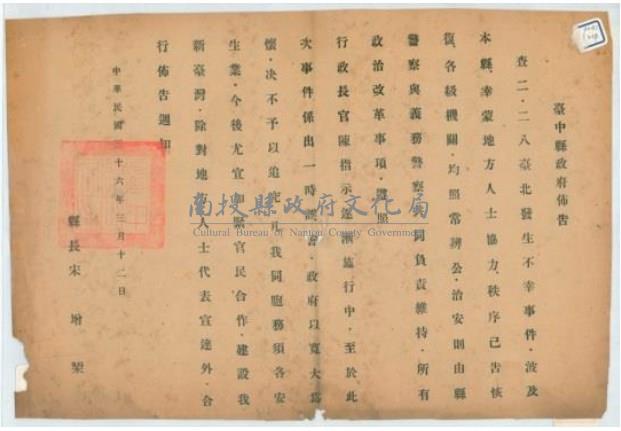 臺中縣政府佈告
查二・二八臺北發生不幸事件・波及
本縣・幸蒙地方人士協力・秩序已告恢
復・各級機關・均照常辦公・治安則由縣
警察與義務警察・同負責維持・所有
政治改革事項・遵照
行政長官陳指示逐漸施行中・至於此
次事件係出一時誤會・政府以寬大為
懷・決不予以追究・我同胞務須各安
生業・今後尤宜加緊官民合作・建設我
新臺灣・除對地方人士代表宣達外・合
行佈告週知
中華民國三十六年三月十二日
縣長宋增榘
南投縣政府文化局
Cultural Bureau of Nantou County Government